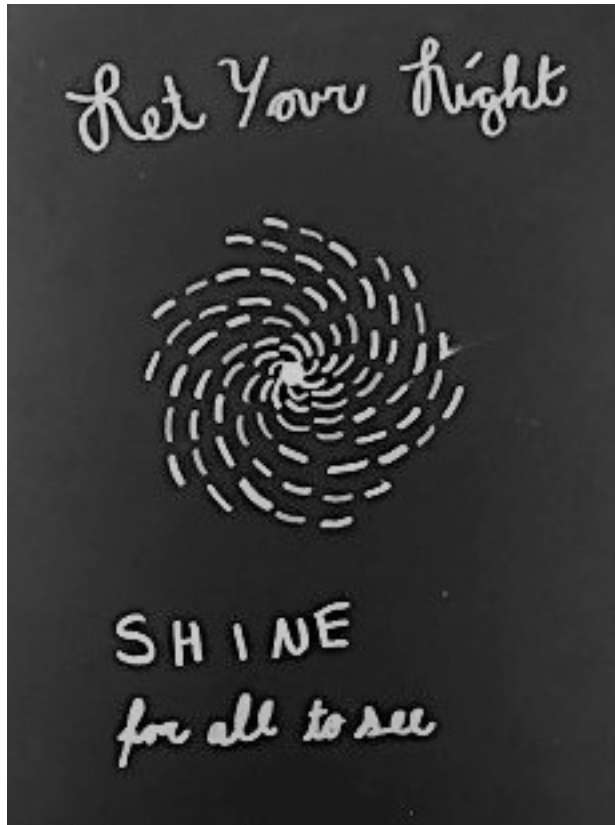 Let Your Light
SHINE
for all to see